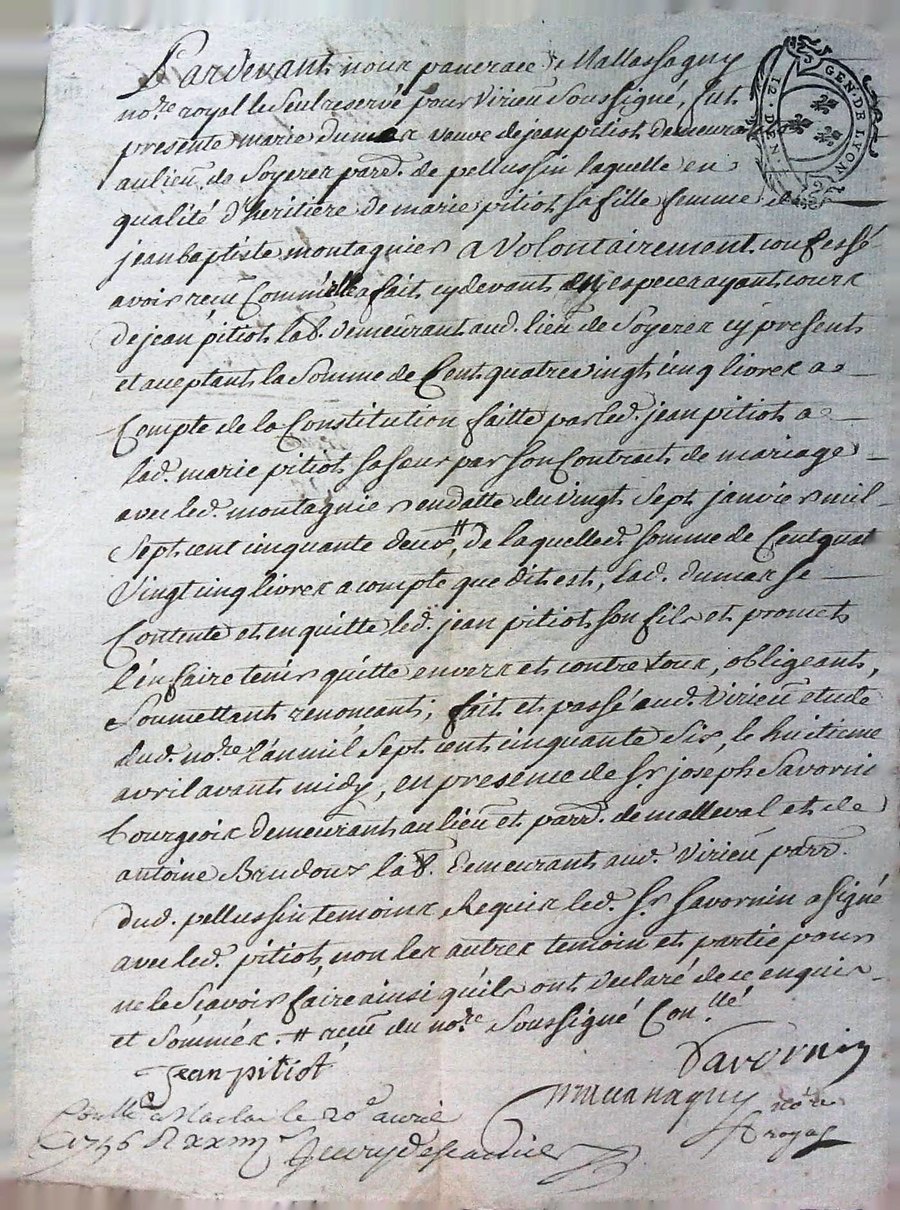 Pardevant nous pancrace Mallassagny
GEN. DE LYON
12. DEN.
no.re royal le seul reservé pour Virieu soussigné, fut
presente marie dumas veuve de jean pitiot demeurant
au lieu de Soyeres parr. de pellussin laquelle en
qualité d'heritiere de marie pitiot sa fille femme de
jean baptiste montagnier a volontairement confessé
avoir reçu comme ella fait cydevant en especes ayant cours
de jean pitiot lab. demeurant aud. lieu de Soyeres cy present
et aceptant la somme de Cent quatre vingt cinq livres a
Compte de la Constitution faitte par led. jean pitiot a
lad. marie pitiot sa seur par son Contrat de mariage
avec led. montagnier en datte du vingt sept janvier mil
sept cent cinquante deux #, de laquelle d. somme de Cent quat
Vingt cinq livres a compte que dit est, lad. dumas se
Contente et en quitte led. jean pitiot son fils et promet
l'en faire tenir quitte envers et contre tous, obligeant,
Soumettant, renoncant, fait et passé aud. Virieu etude
dud. no.re l'an mil sept cent cinquante six, le huitieme
avril avant midy, en presence de Sr. joseph Savornin
bourgeois demeurant au lieu et parr. de malleval et de
antoine Brudoux lab. demeurant aud. Virieu parr.
dud. pellussin temoins Requis led. Sr. Savornin a signé
avec led. pitiot, non les autres temoin et partie pour
ne le sçavoir faire ainsi qu'ils ont declaré de ce enquis
et sommés. # reçeu du no.re soussigné Con.llé
Jean pitiot
Savornin
no.re
royal
a Maclas le 20e avril
1756 R